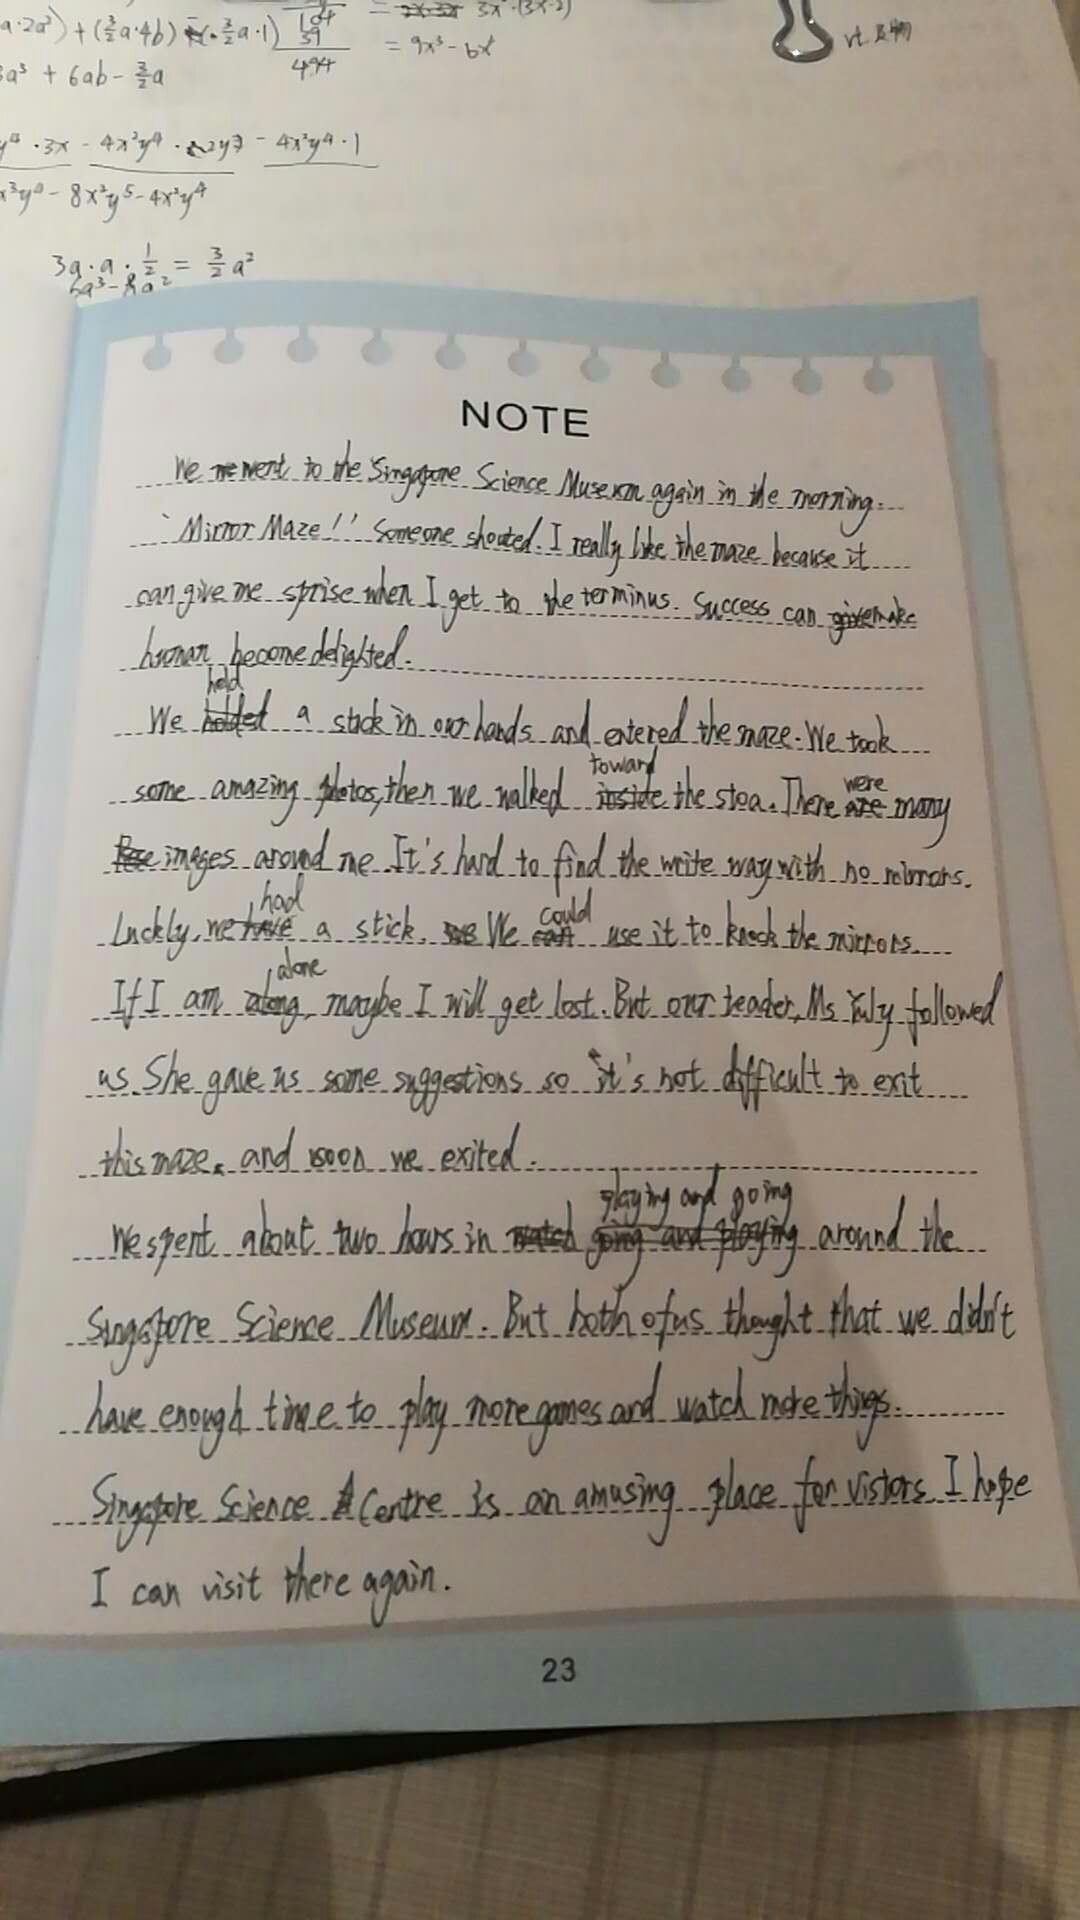 a·2a²) + (3/2a·4b) + (-3/2a·1)
104
39
494
= 3x²·(3x-2)
= 9x³-6x²
vt 及物
3a³ + 6ab - 3/2a
y⁴·3x - 4x²y⁴·2y - 4x²y⁴·1
x³y⁴ - 8x²y⁵ - 4x²y⁴
3a·a·1/2 = 3/2a²
NOTE
We went to the Singapore Science Museum again in the morning.
"Mirror Maze!!" Someone shouted. I really like the maze because it
can give me sprise when I get to the terminus. Success can make
human become delighted.
We held a stick in our hands and entered the maze. We took
some amazing photos, then we walked toward the stoa. There were many
images around me. It's hard to find the write way with no mirrors.
Luckly, we had a stick. We could use it to knock the mirrors.
If I am alone, maybe I will get lost. But our teader, Ms Yuly followed
us. She gave us some suggestions so it's not difficult to exit
this maze, and soon we exited.
We spent about two hours in playing and going around the
Singapore Science Museum. But both of us thought that we didn't
have enough time to play more games and watch more things.
Singapore Science Centre is an amusing place for vistors. I hope
I can visit there again.
23